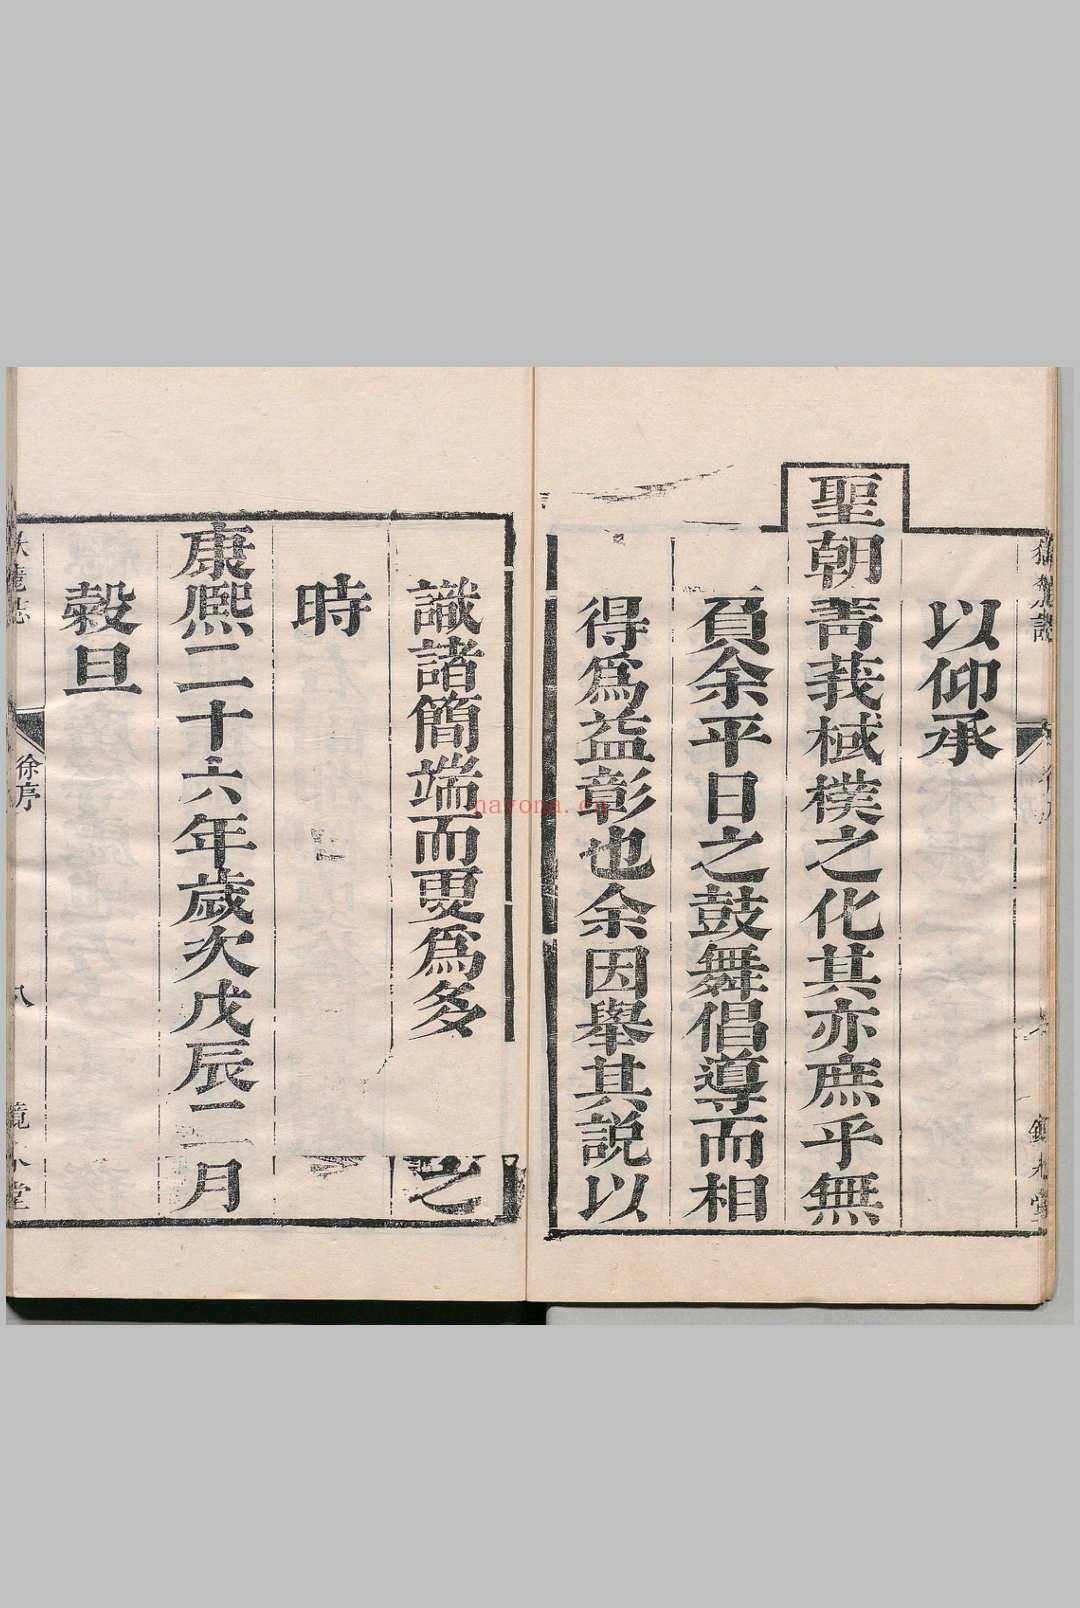 以仰承
聖朝菁莪棫樸之化其亦庶乎無
負余平日之鼓舞倡導而相
得爲益彰也余因舉其説以
識諸簡端而更爲多 之
時
康熙二十六年歲次戊辰二月
穀旦
徐序
八
nayona.cn